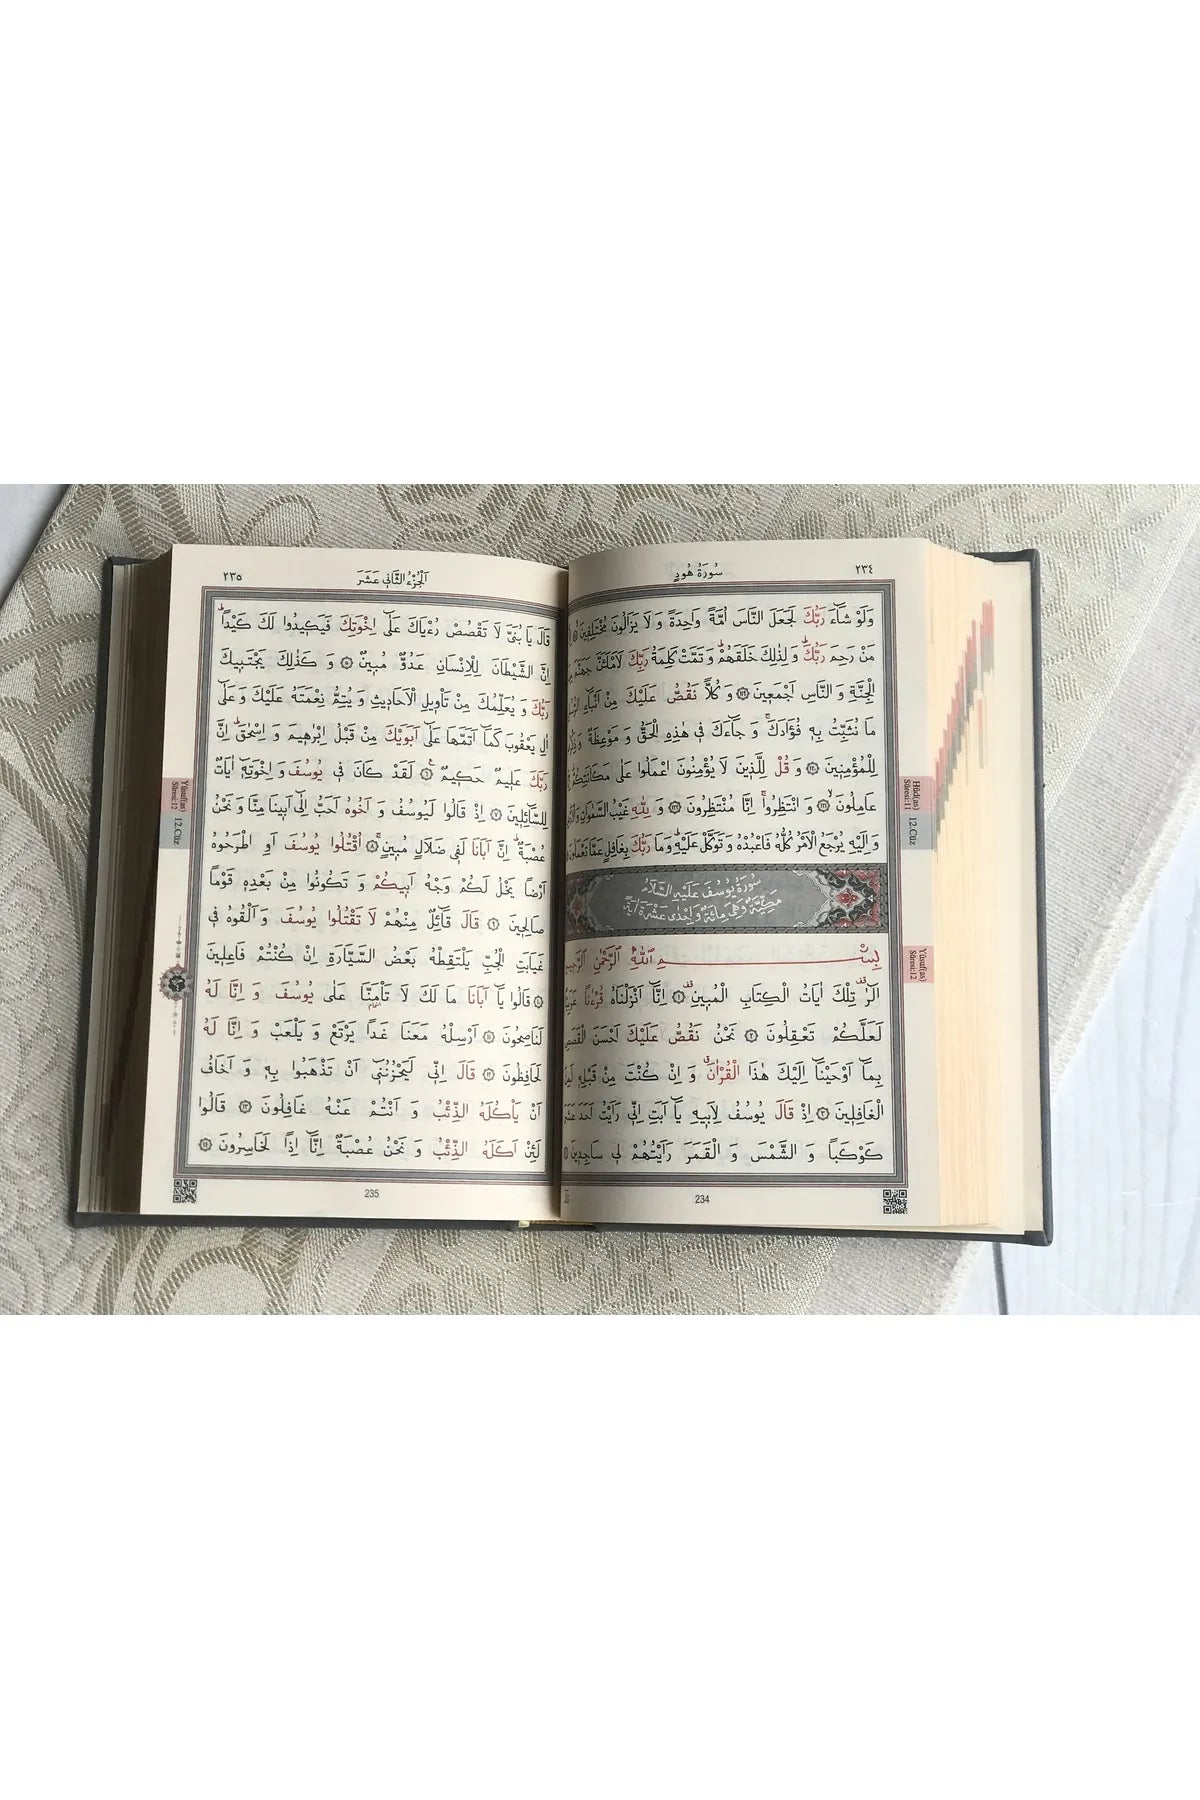 سُورَةُ هُودٍ
٢٣٤
وَلَوْ شَٓاءَ رَبُّكَ لَجَعَلَ النَّاسَ اُمَّةً وَاحِدَةً وَ لَا يَزَالُونَ مُخْتَلِفٖينَ ﴿١١٨﴾
مَنْ رَحِمَ رَبُّكَ وَ لِذٰلِكَ خَلَقَهُمْ وَ تَمَّتْ كَلِمَةُ رَبِّكَ لَاَمْلَئَنَّ جَهَنَّمَ
الْجِنَّةِ وَ النَّاسِ اَجْمَعٖينَ ﴿١١٩﴾ وَ كُلًّا نَقُصُّ عَلَيْكَ مِنْ اَنْبَٓاءِ
مَا نُثَبِّتُ بِهٖ فُؤَادَكَ وَ جَٓاءَكَ فٖى هٰذِهِ الْحَقُّ وَ مَوْعِظَةٌ
لِلْمُؤْمِنٖينَ ﴿١٢٠﴾ وَ قُلْ لِلَّذٖينَ لَا يُؤْمِنُونَ اعْمَلُوا عَلٰى مَكَانَتِكُمْ
عَامِلُونَ ﴿١٢١﴾ وَ انْتَظِرُوا اِنَّا مُنْتَظِرُونَ ﴿١٢٢﴾ وَ لِلّٰهِ غَيْبُ السَّمٰوَاتِ
وَ اِلَيْهِ يُرْجَعُ الْاَمْرُ كُلُّهُ فَاعْبُدْهُ وَ تَوَكَّلْ عَلَيْهِ وَ مَا رَبُّكَ بِغَافِلٍ عَمَّا تَعْمَلُونَ
سُورَةُ يُوسُفَ عَلَيْهِ السَّلَامُ
مَكِّيَّةٌ وَهِىَ مِائَةٌ وَ اِحْدٰى عَشْرَةَ اٰيَةً
بِسْمِ اللّٰهِ الرَّحْمٰنِ الرَّحٖيمِ
الٓرٰ تِلْكَ اٰيَاتُ الْكِتَابِ الْمُبٖينِ ﴿١﴾ اِنَّٓا اَنْزَلْنَاهُ قُرْءٰنًا
لَعَلَّكُمْ تَعْقِلُونَ ﴿٢﴾ نَحْنُ نَقُصُّ عَلَيْكَ اَحْسَنَ الْقَصَصِ
بِمَٓا اَوْحَيْنَٓا اِلَيْكَ هٰذَا الْقُرْاٰنَ وَ اِنْ كُنْتَ مِنْ قَبْلِهٖ لَمِنَ
الْغَافِلٖينَ ﴿٣﴾ اِذْ قَالَ يُوسُفُ لِاَبٖيهِ يَٓا اَبَتِ اِنّٖى رَاَيْتُ اَحَدَ عَشَرَ
كَوْكَبًا وَ الشَّمْسَ وَ الْقَمَرَ رَاَيْتُهُمْ لٖى سَاجِدٖينَ ﴿٤﴾
234
Hûd(as) Sûresi:11
12.Cüz
Yûsuf(as) Sûresi:12
٢٣٥
اَلْجُزْءُ الثَّانٖى عَشَرَ
قَالَ يَا بُنَىَّ لَا تَقْصُصْ رُءْيَاكَ عَلٰٓى اِخْوَتِكَ فَيَكٖيدُوا لَكَ كَيْدًا
اِنَّ الشَّيْطَانَ لِلْاِنْسَانِ عَدُوٌّ مُبٖينٌ ﴿٥﴾ وَ كَذٰلِكَ يَجْتَبٖيكَ
رَبُّكَ وَ يُعَلِّمُكَ مِنْ تَاْوٖيلِ الْاَحَادٖيثِ وَ يُتِمُّ نِعْمَتَهُ عَلَيْكَ وَ عَلٰٓى
اٰلِ يَعْقُوبَ كَمَٓا اَتَمَّهَا عَلٰٓى اَبَوَيْكَ مِنْ قَبْلُ اِبْرٰهٖيمَ وَ اِسْحٰقَ اِنَّ
رَبَّكَ عَلٖيمٌ حَكٖيمٌ ﴿٦﴾ لَقَدْ كَانَ فٖى يُوسُفَ وَ اِخْوَتِهٖٓ اٰيَاتٌ
لِلسَّٓائِلٖينَ ﴿٧﴾ اِذْ قَالُوا لَيُوسُفُ وَ اَخُوهُ اَحَبُّ اِلٰٓى اَبٖينَا مِنَّا وَ نَحْنُ
عُصْبَةٌ اِنَّ اَبَانَا لَفٖى ضَلَالٍ مُبٖينٍ ﴿٨﴾ اُقْتُلُوا يُوسُفَ اَوِ اطْرَحُوهُ
اَرْضًا يَخْلُ لَكُمْ وَجْهُ اَبٖيكُمْ وَ تَكُونُوا مِنْ بَعْدِهٖ قَوْمًا
صَالِحٖينَ ﴿٩﴾ قَالَ قَٓائِلٌ مِنْهُمْ لَا تَقْتُلُوا يُوسُفَ وَ اَلْقُوهُ فٖى
غَيَابَتِ الْجُبِّ يَلْتَقِطْهُ بَعْضُ السَّيَّارَةِ اِنْ كُنْتُمْ فَاعِلٖينَ
﴿١٠﴾ قَالُوا يَٓا اَبَانَا مَا لَكَ لَا تَاْمَنَّا عَلٰى يُوسُفَ وَ اِنَّا لَهُ
لَنَاصِحُونَ ﴿١١﴾ اَرْسِلْهُ مَعَنَا غَدًا يَرْتَعْ وَ يَلْعَبْ وَ اِنَّا لَهُ
لَحَافِظُونَ ﴿١٢﴾ قَالَ اِنّٖى لَيَحْزُنُنٖٓى اَنْ تَذْهَبُوا بِهٖ وَ اَخَافُ
اَنْ يَاْكُلَهُ الذِّئْبُ وَ اَنْتُمْ عَنْهُ غَافِلُونَ ﴿١٣﴾ قَالُوا
لَئِنْ اَكَلَهُ الذِّئْبُ وَ نَحْنُ عُصْبَةٌ اِنَّٓا اِذًا لَخَاسِرُونَ ﴿١٤﴾
235
Yûsuf(as) Sûresi:12
12.Cüz